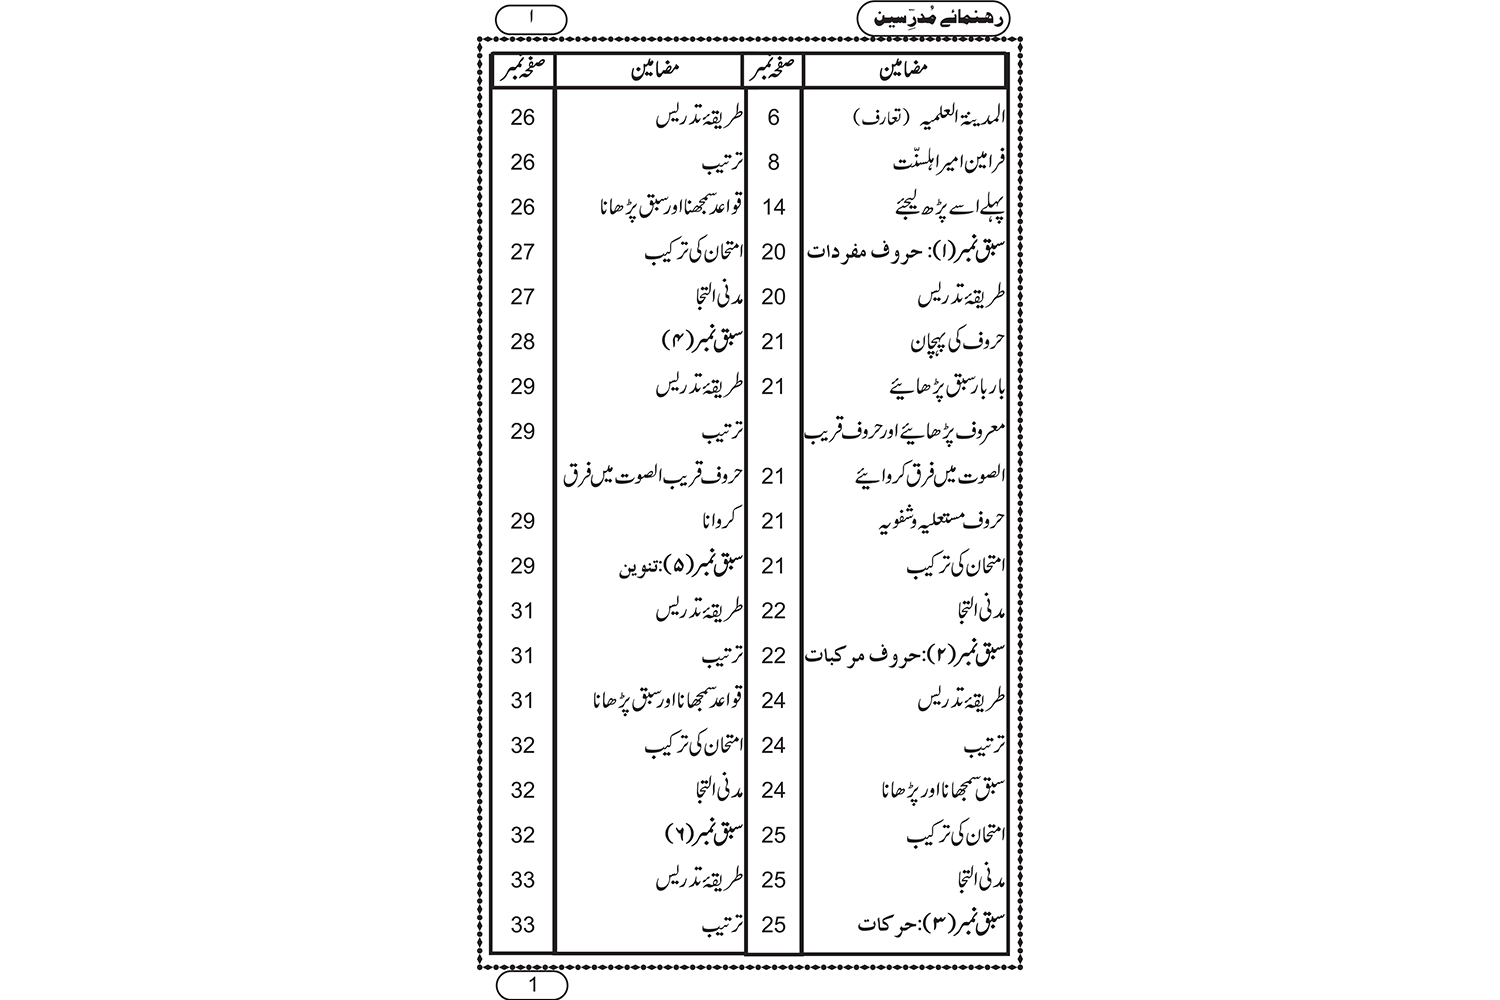 رهنمائے مُدرِّسین
۱
مضامین صفحہ نمبر مضامین صفحہ نمبر
المدینۃ العلمیہ (تعارف) 6
فرامین امیر اہلسنّت 8
پہلے اسے پڑھ لیجئے 14
سبق نمبر (۱): حروف مفردات 20
طریقۂ تدریس 20
حروف کی پہچان 21
بار بار سبق پڑھائیے 21
معروف پڑھائیے اور حروف قریب
الصوت میں فرق کروائیے 21
حروف مستعلیہ و شفویہ 21
امتحان کی ترکیب 21
مدنی التجا 22
سبق نمبر (۲): حروف مرکبات 22
طریقۂ تدریس 24
ترتیب 24
سبق سمجھانا اور پڑھانا 24
امتحان کی ترکیب 25
مدنی التجا 25
سبق نمبر (۳): حرکات 25
طریقۂ تدریس 26
ترتیب 26
قواعد سمجھنا اور سبق پڑھانا 26
امتحان کی ترکیب 27
مدنی التجا 27
سبق نمبر (۴) 28
طریقۂ تدریس 29
ترتیب 29
حروف قریب الصوت میں فرق
کروانا 29
سبق نمبر (۵): تنوین 29
طریقۂ تدریس 31
ترتیب 31
قواعد سمجھانا اور سبق پڑھانا 31
امتحان کی ترکیب 32
مدنی التجا 32
سبق نمبر (۶) 32
طریقۂ تدریس 33
ترتیب 33
1